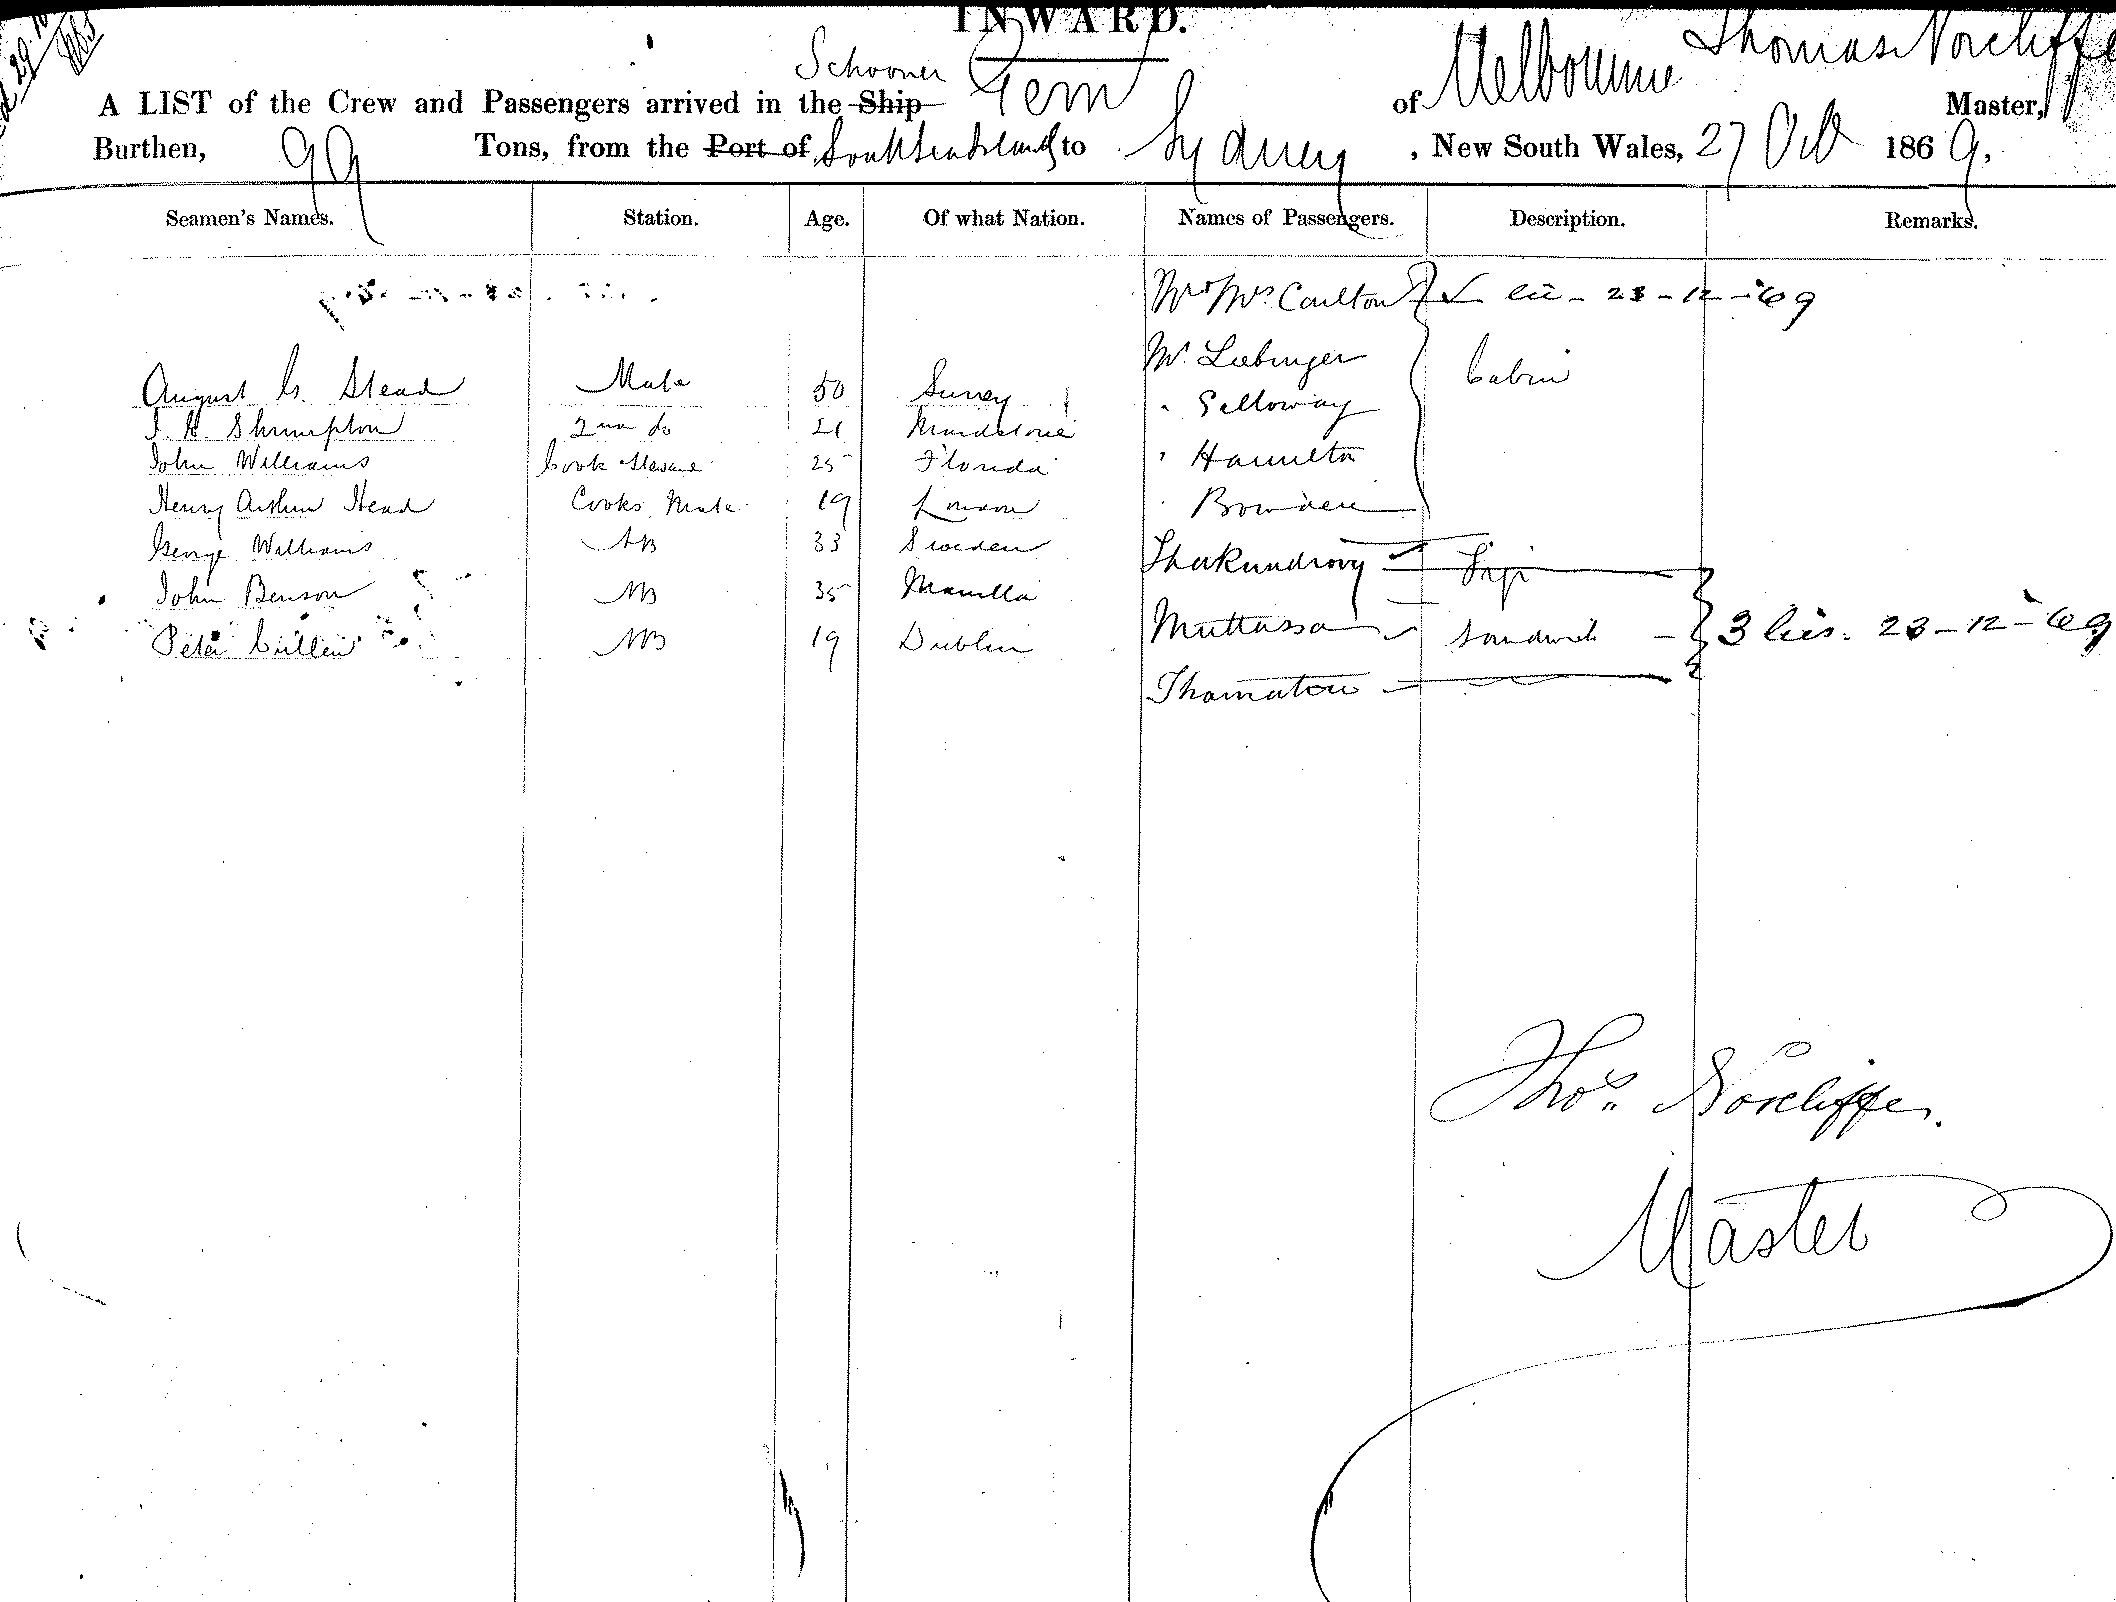 INWARD.
Schooner
A LIST of the Crew and Passengers arrived in the Ship Gem of Melbourne Thomas Norcliffe Master,
Burthen, 99 Tons, from the Port of South Sea Islands to Sydney, New South Wales, 27 Oct 1869.
Seamen's Names. Station. Age. Of what Nation. Names of Passengers. Description. Remarks.
Mr & Mrs Coulton 23-12-69
Mr. Cabin
August G. Stead Mate 50 Surrey " Galloway
J. H. Shrumpton 2nd do 21 Maidstone
John Williams Cook Steward 25 Florida " Hamilton
Henry Arthur Head Cooks Mate 19 London " Bowden
George Williams AB 33 Sweden Thakundrovy Fiji
John Benson AB 35 Manilla
Peter Cullen AB 19 Dublin Muttassa Sandwich 3 lies. 23-12-69
Thomatou
Thos. Norcliffe.
Master